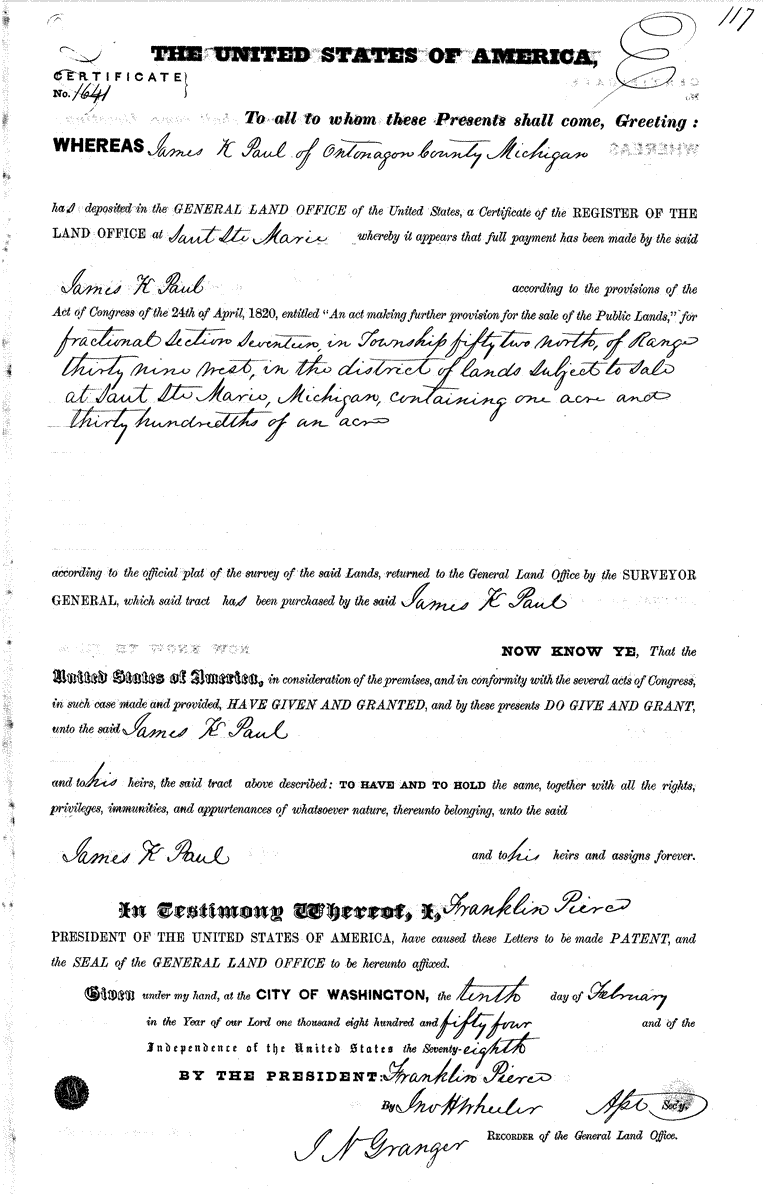 117
THE UNITED STATES OF AMERICA,
CERTIFICATE
No. 1641
To all to whom these Presents shall come, Greeting:
WHEREAS James K Paul of Ontonagon County Michigan
has deposited in the GENERAL LAND OFFICE of the United States, a Certificate of the REGISTER OF THE
LAND OFFICE at Saut Ste Marie whereby it appears that full payment has been made by the said
James K Paul according to the provisions of the
Act of Congress of the 24th of April, 1820, entitled "An act making further provision for the sale of the Public Lands," for
fractional Section Seventeen, in Township fifty two north, of Range
thirty nine west, in the district of lands subject to sale
at Saut Ste Marie, Michigan, containing one acre and
thirty hundredths of an acre
according to the official plat of the survey of the said Lands, returned to the General Land Office by the SURVEYOR
GENERAL, which said tract has been purchased by the said James K Paul
NOW KNOW YE, That the
United States of America, in consideration of the premises, and in conformity with the several acts of Congress,
in such case made and provided, HAVE GIVEN AND GRANTED, and by these presents DO GIVE AND GRANT,
unto the said James K Paul
and to his heirs, the said tract above described: TO HAVE AND TO HOLD the same, together with all the rights,
privileges, immunities, and appurtenances of whatsoever nature, thereunto belonging, unto the said
James K Paul and to his heirs and assigns forever.
In Testimony Whereof, I, Franklin Pierce
PRESIDENT OF THE UNITED STATES OF AMERICA, have caused these Letters to be made PATENT, and
the SEAL of the GENERAL LAND OFFICE to be hereunto affixed.
Given under my hand, at the CITY OF WASHINGTON, the tenth day of February
in the Year of our Lord one thousand eight hundred and fifty four and of the
Independence of the United States the Seventy-eighth
BY THE PRESIDENT: Franklin Pierce
By Jno H Wheeler Asst Sec'y.
J N Granger RECORDER of the General Land Office.